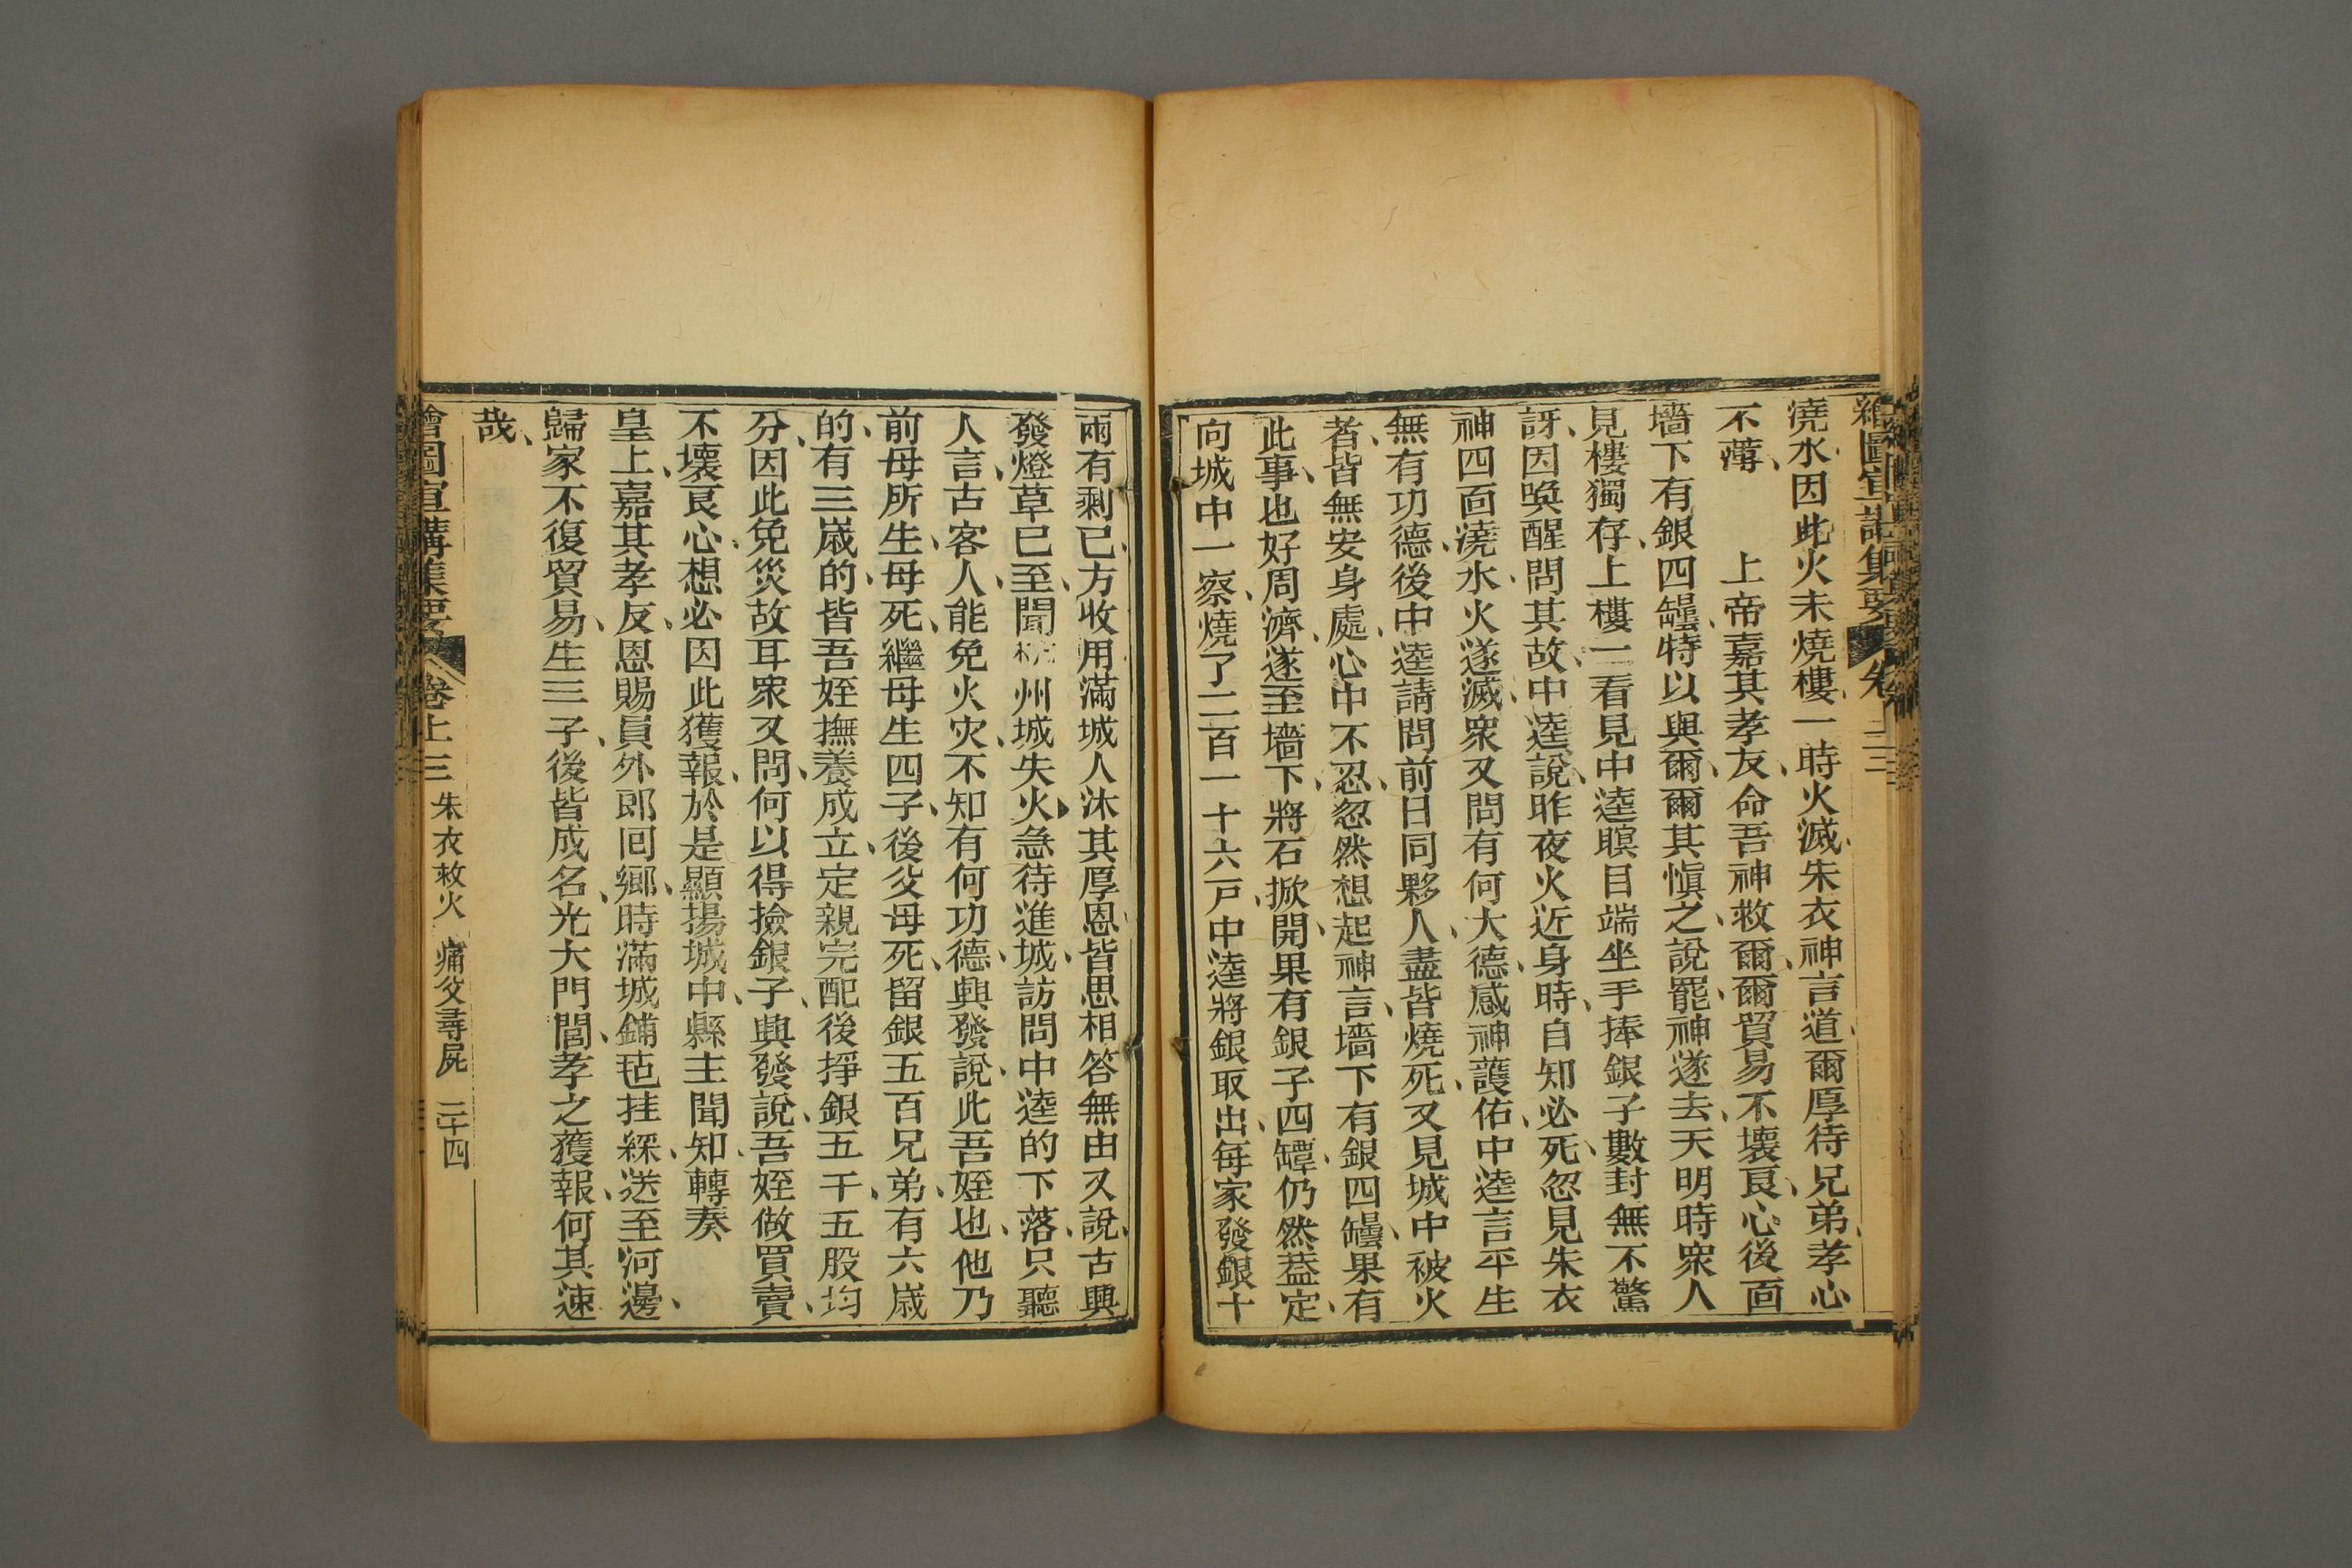 繪圖宣講集要 卷上三
澆水因此火未燒樓一時火滅朱衣神言道爾厚待兄弟孝心
不薄、上帝嘉其孝友、命吾神救爾、爾貿易不壞良心後面
墻下有銀四罎、特以與爾、爾其愼之、說罷、神遂去、天明時眾人
見樓獨存、上樓一看見中逵瞑目端坐手捧銀子數封無不驚
訝、因喚醒問其故、中逵說、昨夜火近身時、自知必死、忽見朱衣
神四面澆水、火遂滅、眾又問有何大德、感神護佑、中逵言平生
無有功德、後中逵請問前日同夥人、盡皆燒死、又見城中被火
者、皆無安身處、心中不忍、忽然想起神言、墻下有銀四罎、果有
此事、也好周濟、遂至墻下、將石掀開、果有銀子四罈、仍然葢定、
向城中一察、燒了二百一十六戸、中逵將銀取出、每家發銀十
兩有剩、已方收用滿城人沐其厚恩、皆思相答無由又說、古興
發燈草已至、聞杭州城失火、急待進城、訪問中逵的下落、只聽
人言、古客人、能免火灾、不知有何功德、興發說、此吾姪也、他乃
前母所生、母死、繼母生四子、後父母死、留銀五百兄弟、有六歲
的、有三歲的、皆吾姪撫養成立、定親完配後掙銀五千、五股均
分、因此免災故耳眾又問、何以得撿銀子、興發說、吾姪做買賣、
不壞良心、想必因此獲報、於是顯揚城中、縣主聞知、轉奏
皇上、嘉其孝友、恩賜員外郎囘鄉、時滿城鋪毡挂綵、送至河邊、
歸家不復貿易、生三子、後皆成名、光大門閭、孝之獲報、何其速
哉、
繪圖宣講集要 卷上三 朱衣救火 痛父尋屍 三十四